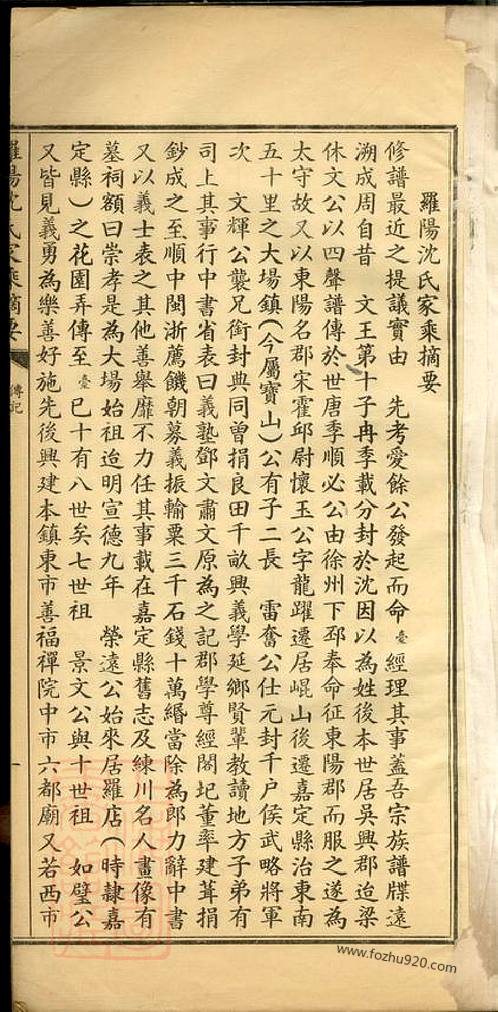 羅陽沈氏家乘摘要
修譜最近之提議實由　先考愛餘公發起而命臺經理其事蓋吾宗族譜牒遠
溯成周自昔　文王第十子冉季載分封於沈因以為姓後本世居吳興郡迨梁
休文公以四聲譜傳於世唐季順必公由徐州下邳奉命征東陽郡而服之遂為
太守故又以東陽名郡宋霍邱尉懷玉公字龍躍遷居崐山後遷嘉定縣治東南
五十里之大場鎮(今屬寶山)公有子二長　雷奮公仕元封千戶侯武略將軍
次　文輝公襲兄銜封典同曾捐良田千畝興義學延鄉賢輩教讀地方子弟有
司上其事行中書省表曰義塾鄧文肅文原為之記郡學尊經閣圮董率建葺捐
鈔成之至順中閩浙薦饑朝募義振輸粟三千石錢十萬緡當除為郎力辭中書
又以義士表之其他善舉靡不力任其事載在嘉定縣舊志及練川名人畫像有
墓祠額曰崇孝是為大場始祖迨明宣德九年　榮遠公始來居羅店(時隸嘉
定縣)之花園弄傳至臺已十有八世矣七世祖　景文公與十世祖　如璧公
又皆見義勇為樂善好施先後興建本鎮東市善福禪院中市六都廟又若西市
羅陽沈氏家乘摘要
傳記
一
www.fozhu920.com